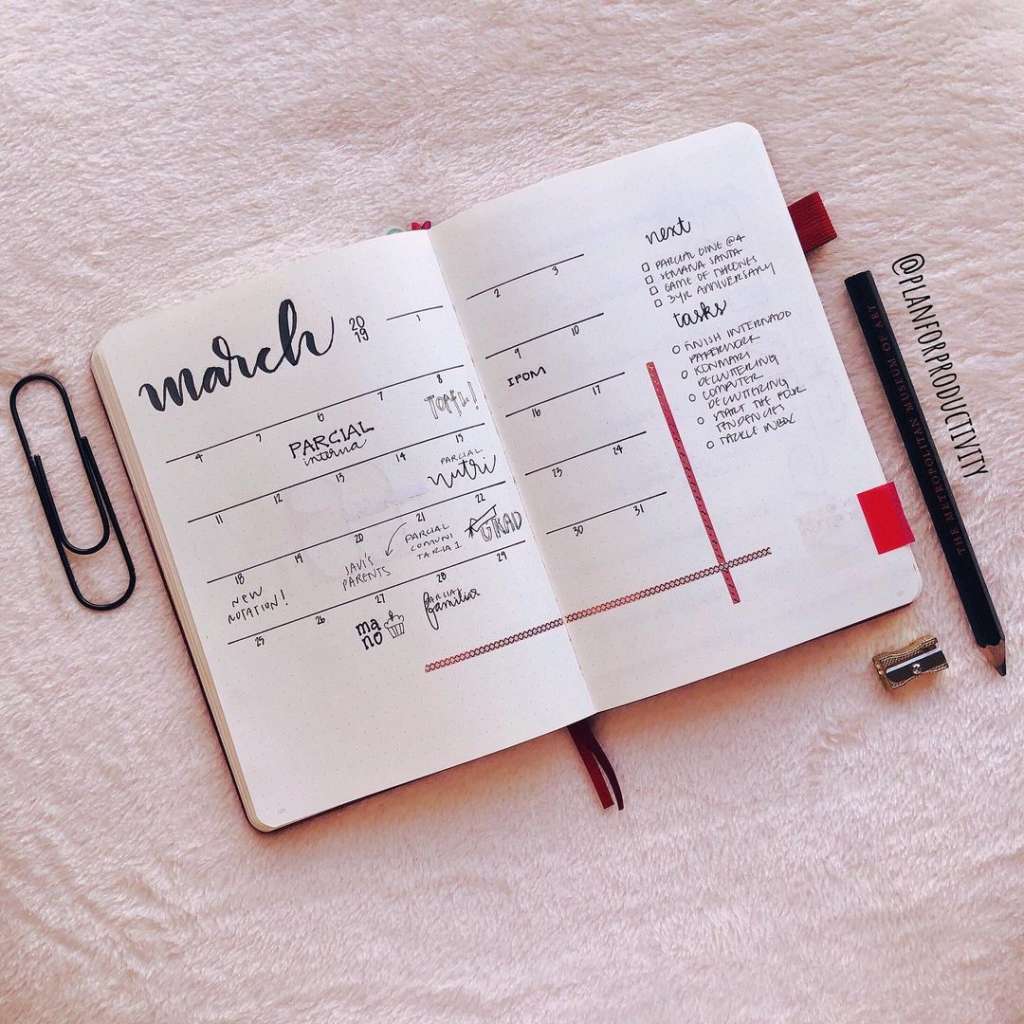 march
20
19
1
4 5 6 7 8
PARCIAL
interna
11 12 13 14 15
PARCIAL
nutri
18 19 20 21 22
NEW
ROTATION!
JAVI'S
PARENTS
PARCIAL
COMUNI
TARIA 1
25 26 27 28 29
ma
no
PARCIAL
familiar
2 3
9 10
IFOM
16 17
23 24
30 31
next
PARCIAL GINE @4
SEMANA SANTA
GAME OF THRONES
3YR ANNIVERSARY
tasks
FINISH INTERNADO
PAPERWORK
KONMARI
DECLUTTERING
COMPUTER
DECLUTTERING
START THE FOUR
TENDENCIES
TACKLE INBOX
@PLANFORPRODUCTIVITY
THE METROPOLITAN MUSEUM OF ART